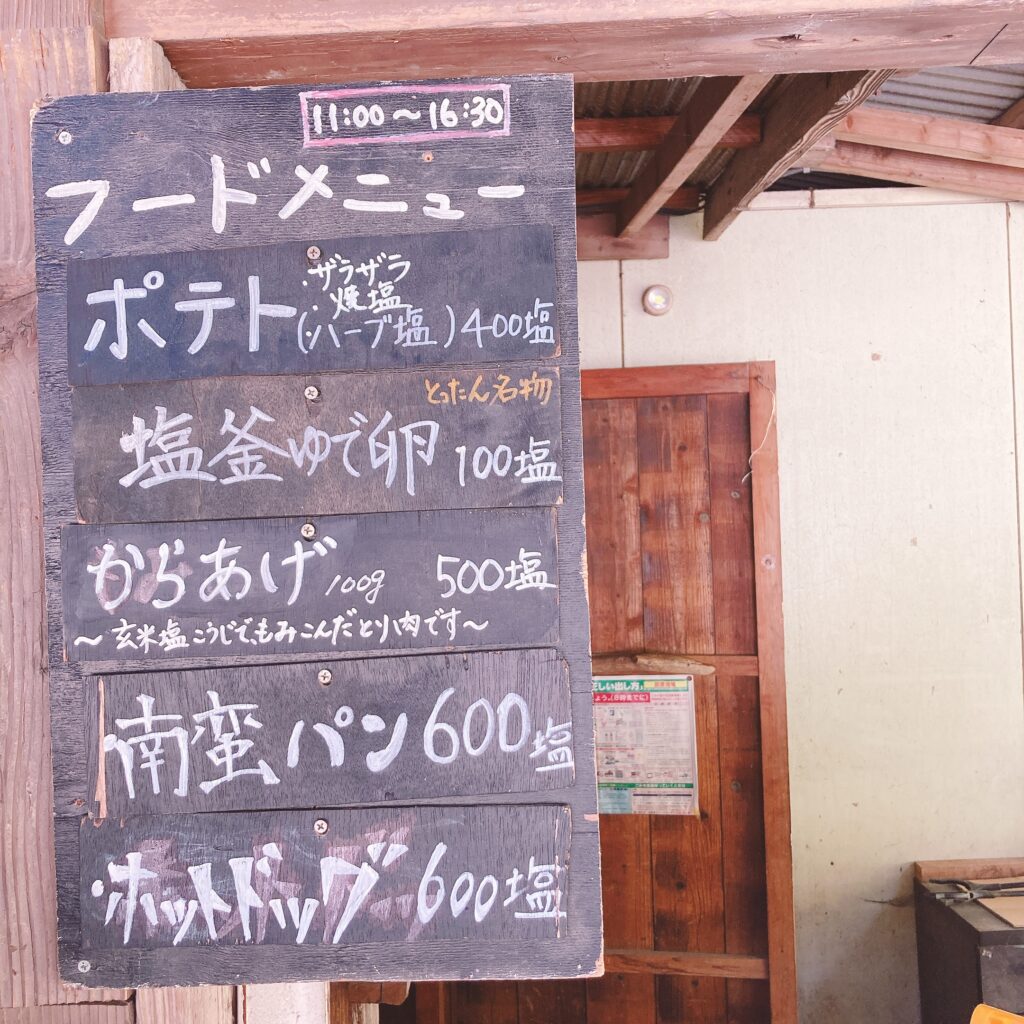 11:00〜16:30
フードメニュー
・ザラザラ
・焼塩
ポテト(ハーブ塩)400塩
とったん名物
塩釜ゆで卵 100塩
からあげ 100g 500塩
〜玄米塩こうじでもみこんだとり肉です〜
・南蛮パン600塩
・ホットドッグ600塩
正しい出し方